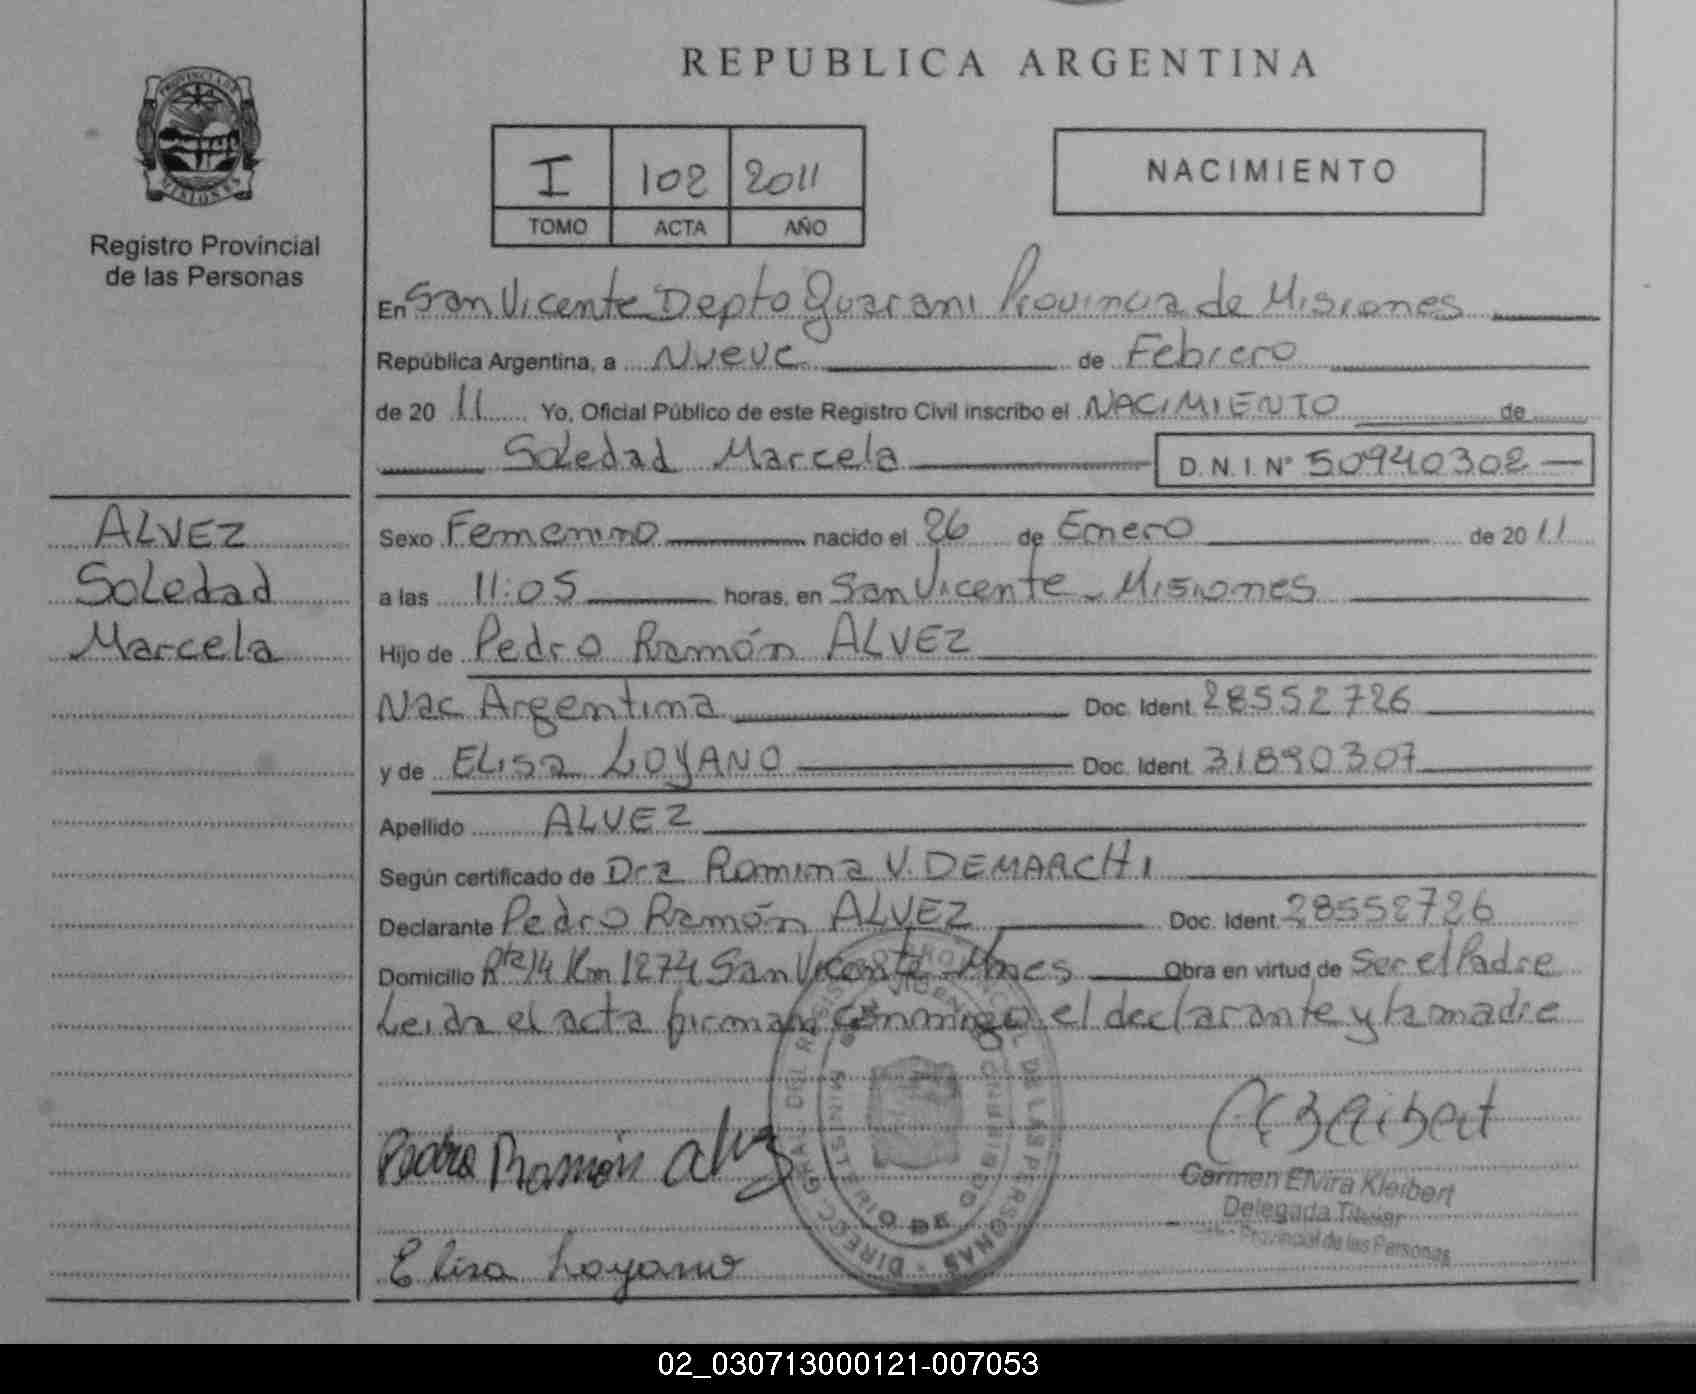 PROVINCIA DE
MISIONES
Registro Provincial
de las Personas
ALVEZ
Soledad
Marcela
REPUBLICA ARGENTINA
I 102 2011
TOMO ACTA AÑO
NACIMIENTO
En San Vicente Depto Guarani Provincia de Misiones
República Argentina, a Nueve de Febrero
de 20 11 Yo, Oficial Público de este Registro Civil inscribo el NACIMIENTO de
Soledad Marcela D.N.I. N° 50940302
Sexo Femenino nacido el 26 de Enero de 20 11
a las 11:05 horas, en San Vicente - Misiones
Hijo de Pedro Ramón ALVEZ
Nac Argentina Doc. Ident. 28552726
y de ELisa LOYANO Doc. Ident. 31890307
Apellido ALVEZ
Según certificado de Dra Romina V. DEMARCHI
Declarante Pedro Ramón ALVEZ Doc. Ident. 28552726
Domicilio Rta 14 Km 1274 San Vicente - Mnes Obra en virtud de Ser el Padre
Leida el acta firman conmigo el declarante y la madre
Pedro Ramón Alvez
Elisa Loyano
DIRECC. GRAL. DEL REGISTRO PROVINCIAL DE LAS PERSONAS
MINISTERIO DE GOBIERNO
SAN VICENTE
Carmen Elvira Kleibert
Delegada Titular
Provincial de las Personas
02_030713000121-007053